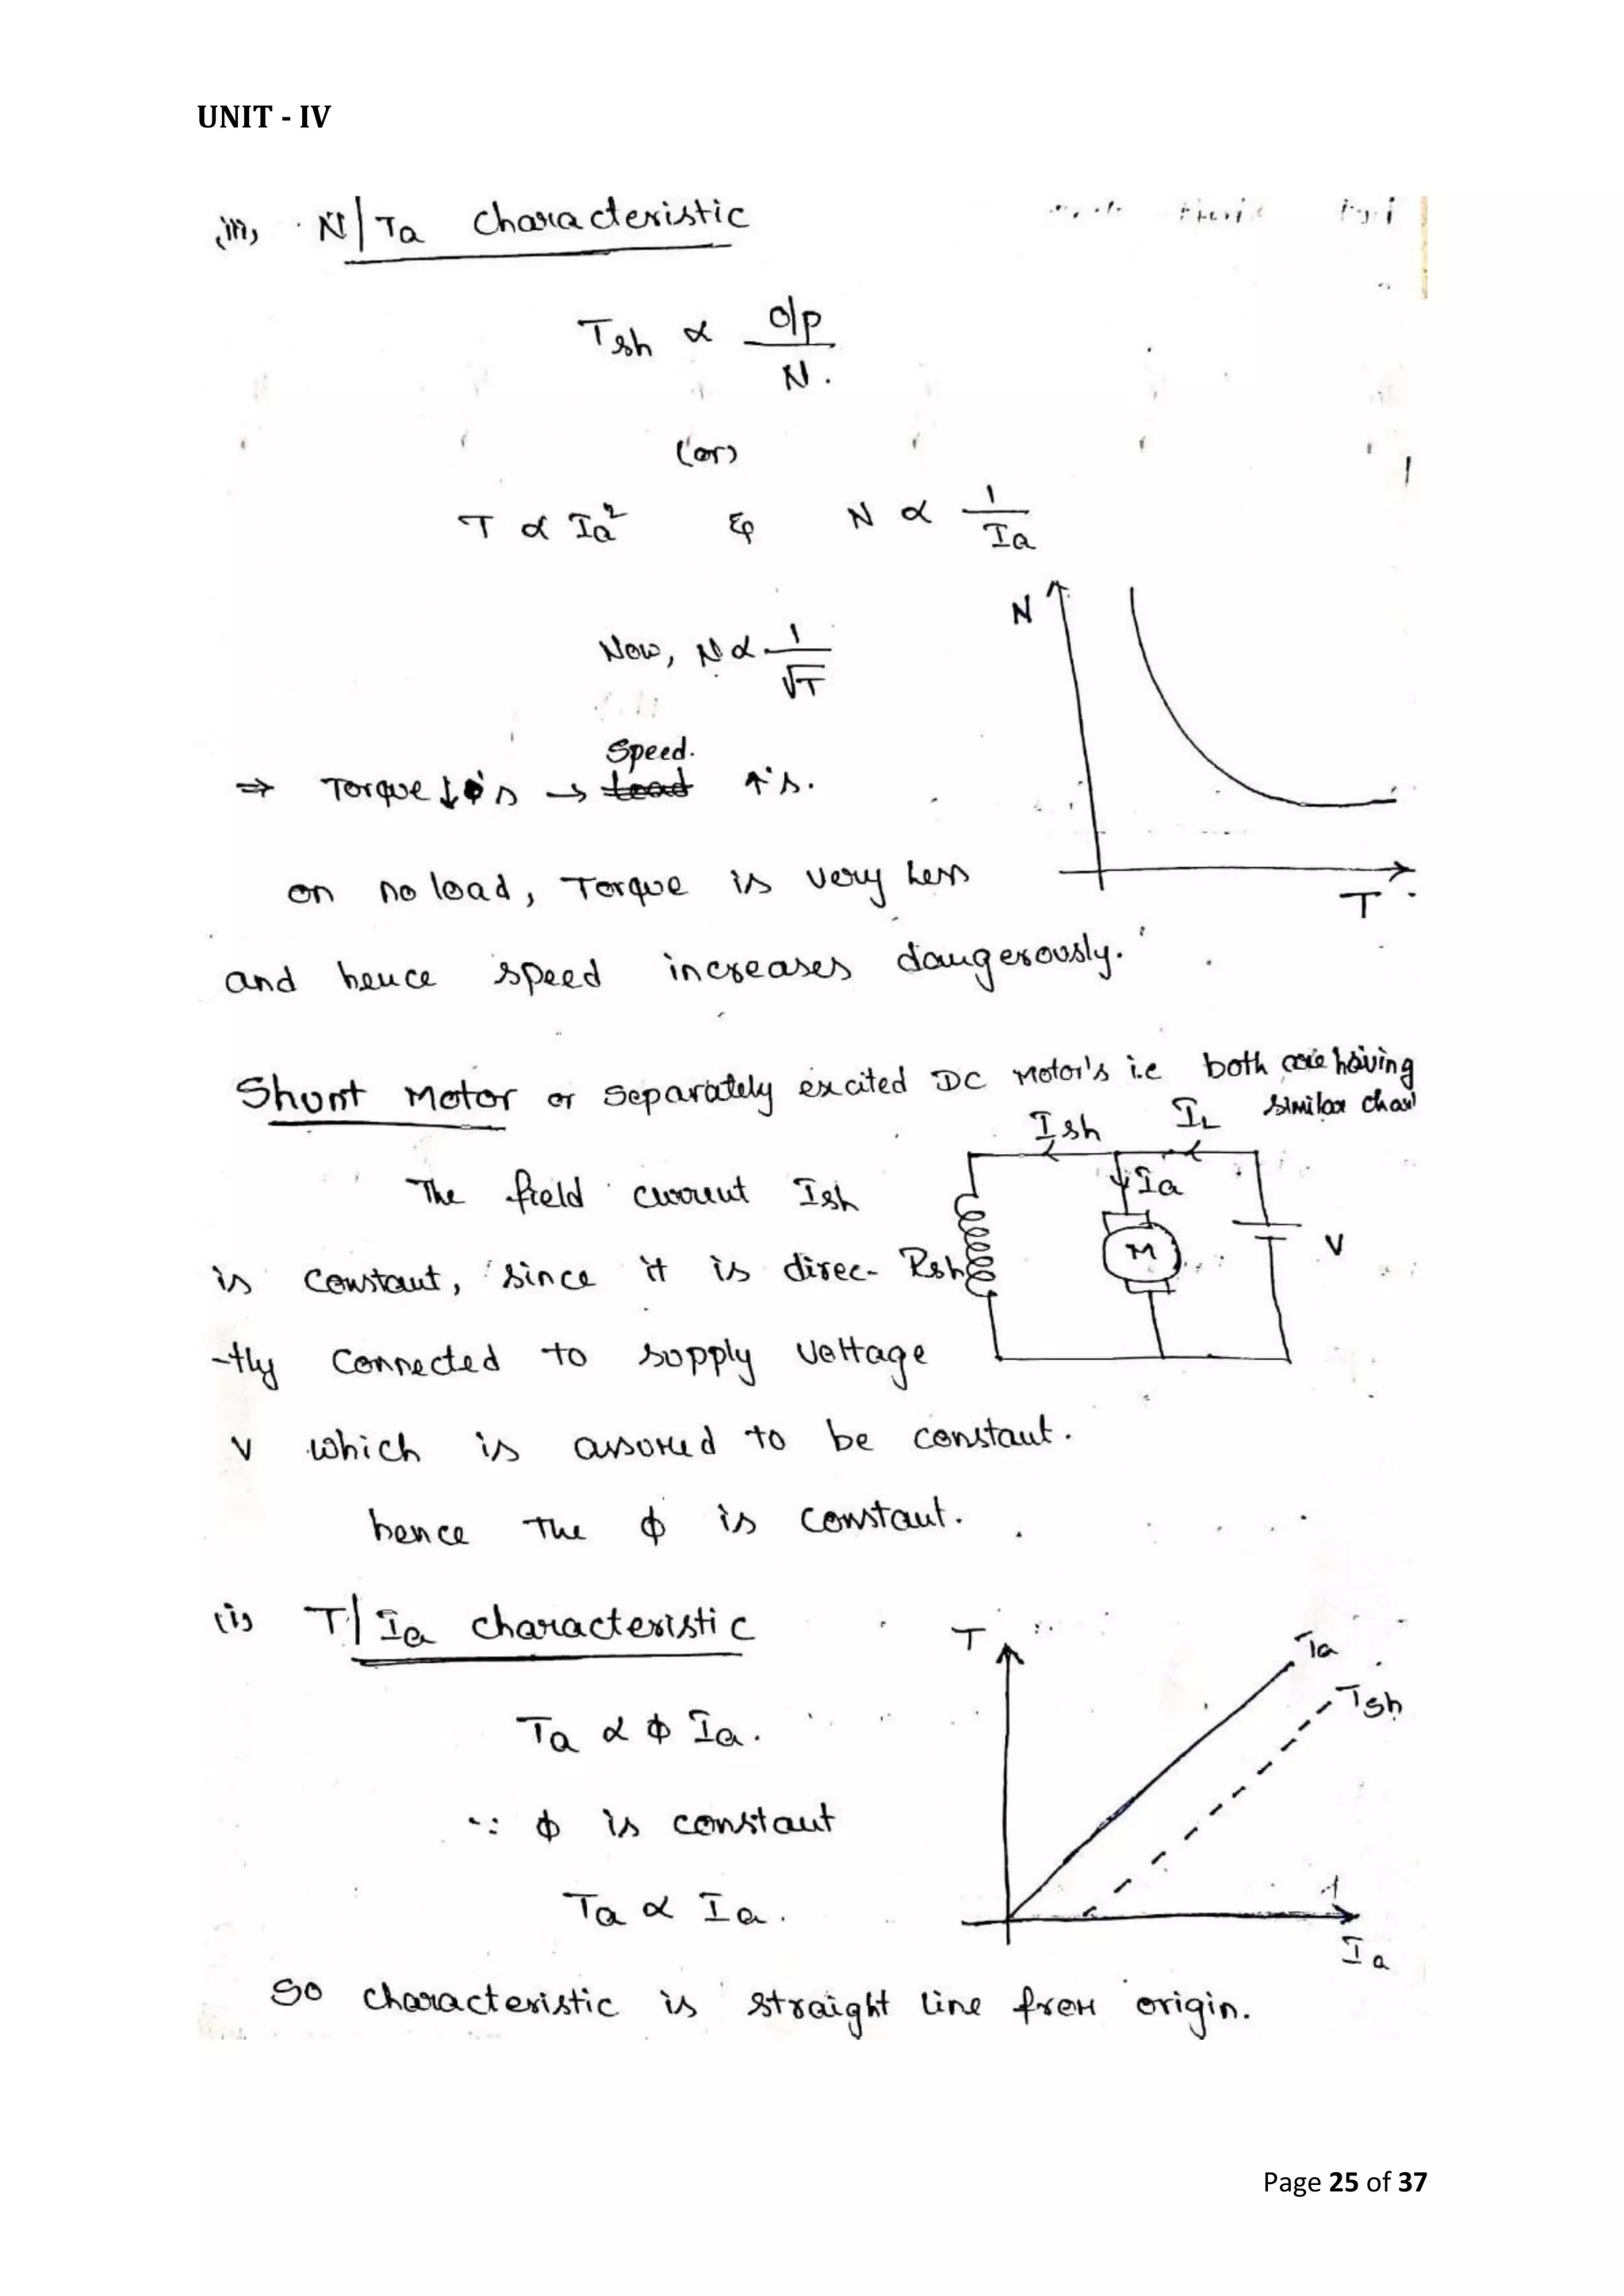 UNIT - IV
(iii) N/Ta characteristic
Tsh ∝ o/p / N.
(or)
T ∝ Ia² & N ∝ 1/Ia
N
Now, N ∝ 1/√T
Speed.
⇒ Torque ↓'s → load ↑'s.
on no load, Torque is very less
T
and hence speed increases dangerously.
Shunt Motor or separately excited DC Motor's i.e both are having
similar char
Ish IL
The field current Ish
Ia
M
V
is constant, since it is direc-
Rsh
-tly connected to supply voltage
V which is assured to be constant.
hence The ϕ is constant.
(i) T/Ia characteristic
T
Ta
Tsh
Ta ∝ ϕ Ia.
∵ ϕ is constant
Ta ∝ Ia.
Ia
So characteristic is straight line from origin.
Page 25 of 37